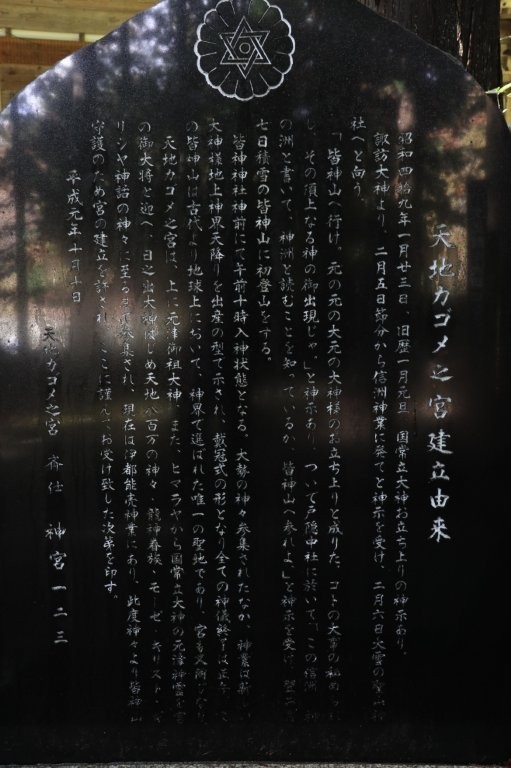 天地カゴメ之宮建立由来
昭和四拾九年一月廿三日、旧暦一月元旦、国常立大神お立ち上りの神示あり。
諏訪大神より、二月五日節分から信洲神業に発てと神示を受け、二月六日大雪の
社へと向う
「皆神山へ行け。元の元の大元の大神様のお立ち上りと成りた。コトの大事の
し、その頂上なる神の御出現じゃ。」と神示あり、ついで戸隠中社に於いて、この信洲
の洲と書いて、神洲と読むことを知っているか、皆神山へ参れよ」と神示を受け
七日積雪の皆神山に初登山をする。
皆神神社神前にて午前十時入神状態となる。大勢の神々参集されたなか
大神様地上神界天降りを出産の型で示され、戴冠式の形となり全ての神儀終了は正午
の皆神山は古代より地球上において、神界で選ばれた唯一の聖地であり、宮も又所
天地カゴメ之宮は、上に元津御祖大神、また、ヒマラヤから国常立大神の元津神霊を
の御大将と迎へ、日之出大神はじめ天地八百万の神々、龍神眷族、モーゼ、キリスト、
リシヤ神話の神々に至るまで参集され、現在は伊都能売神業にあり、此度神々より皆神山
守護のため宮の建立を許され、ここに謹んでお受け致した次第を印す。
平成元年十月十日
天地カゴメ之宮 斉仕 神宮一二三